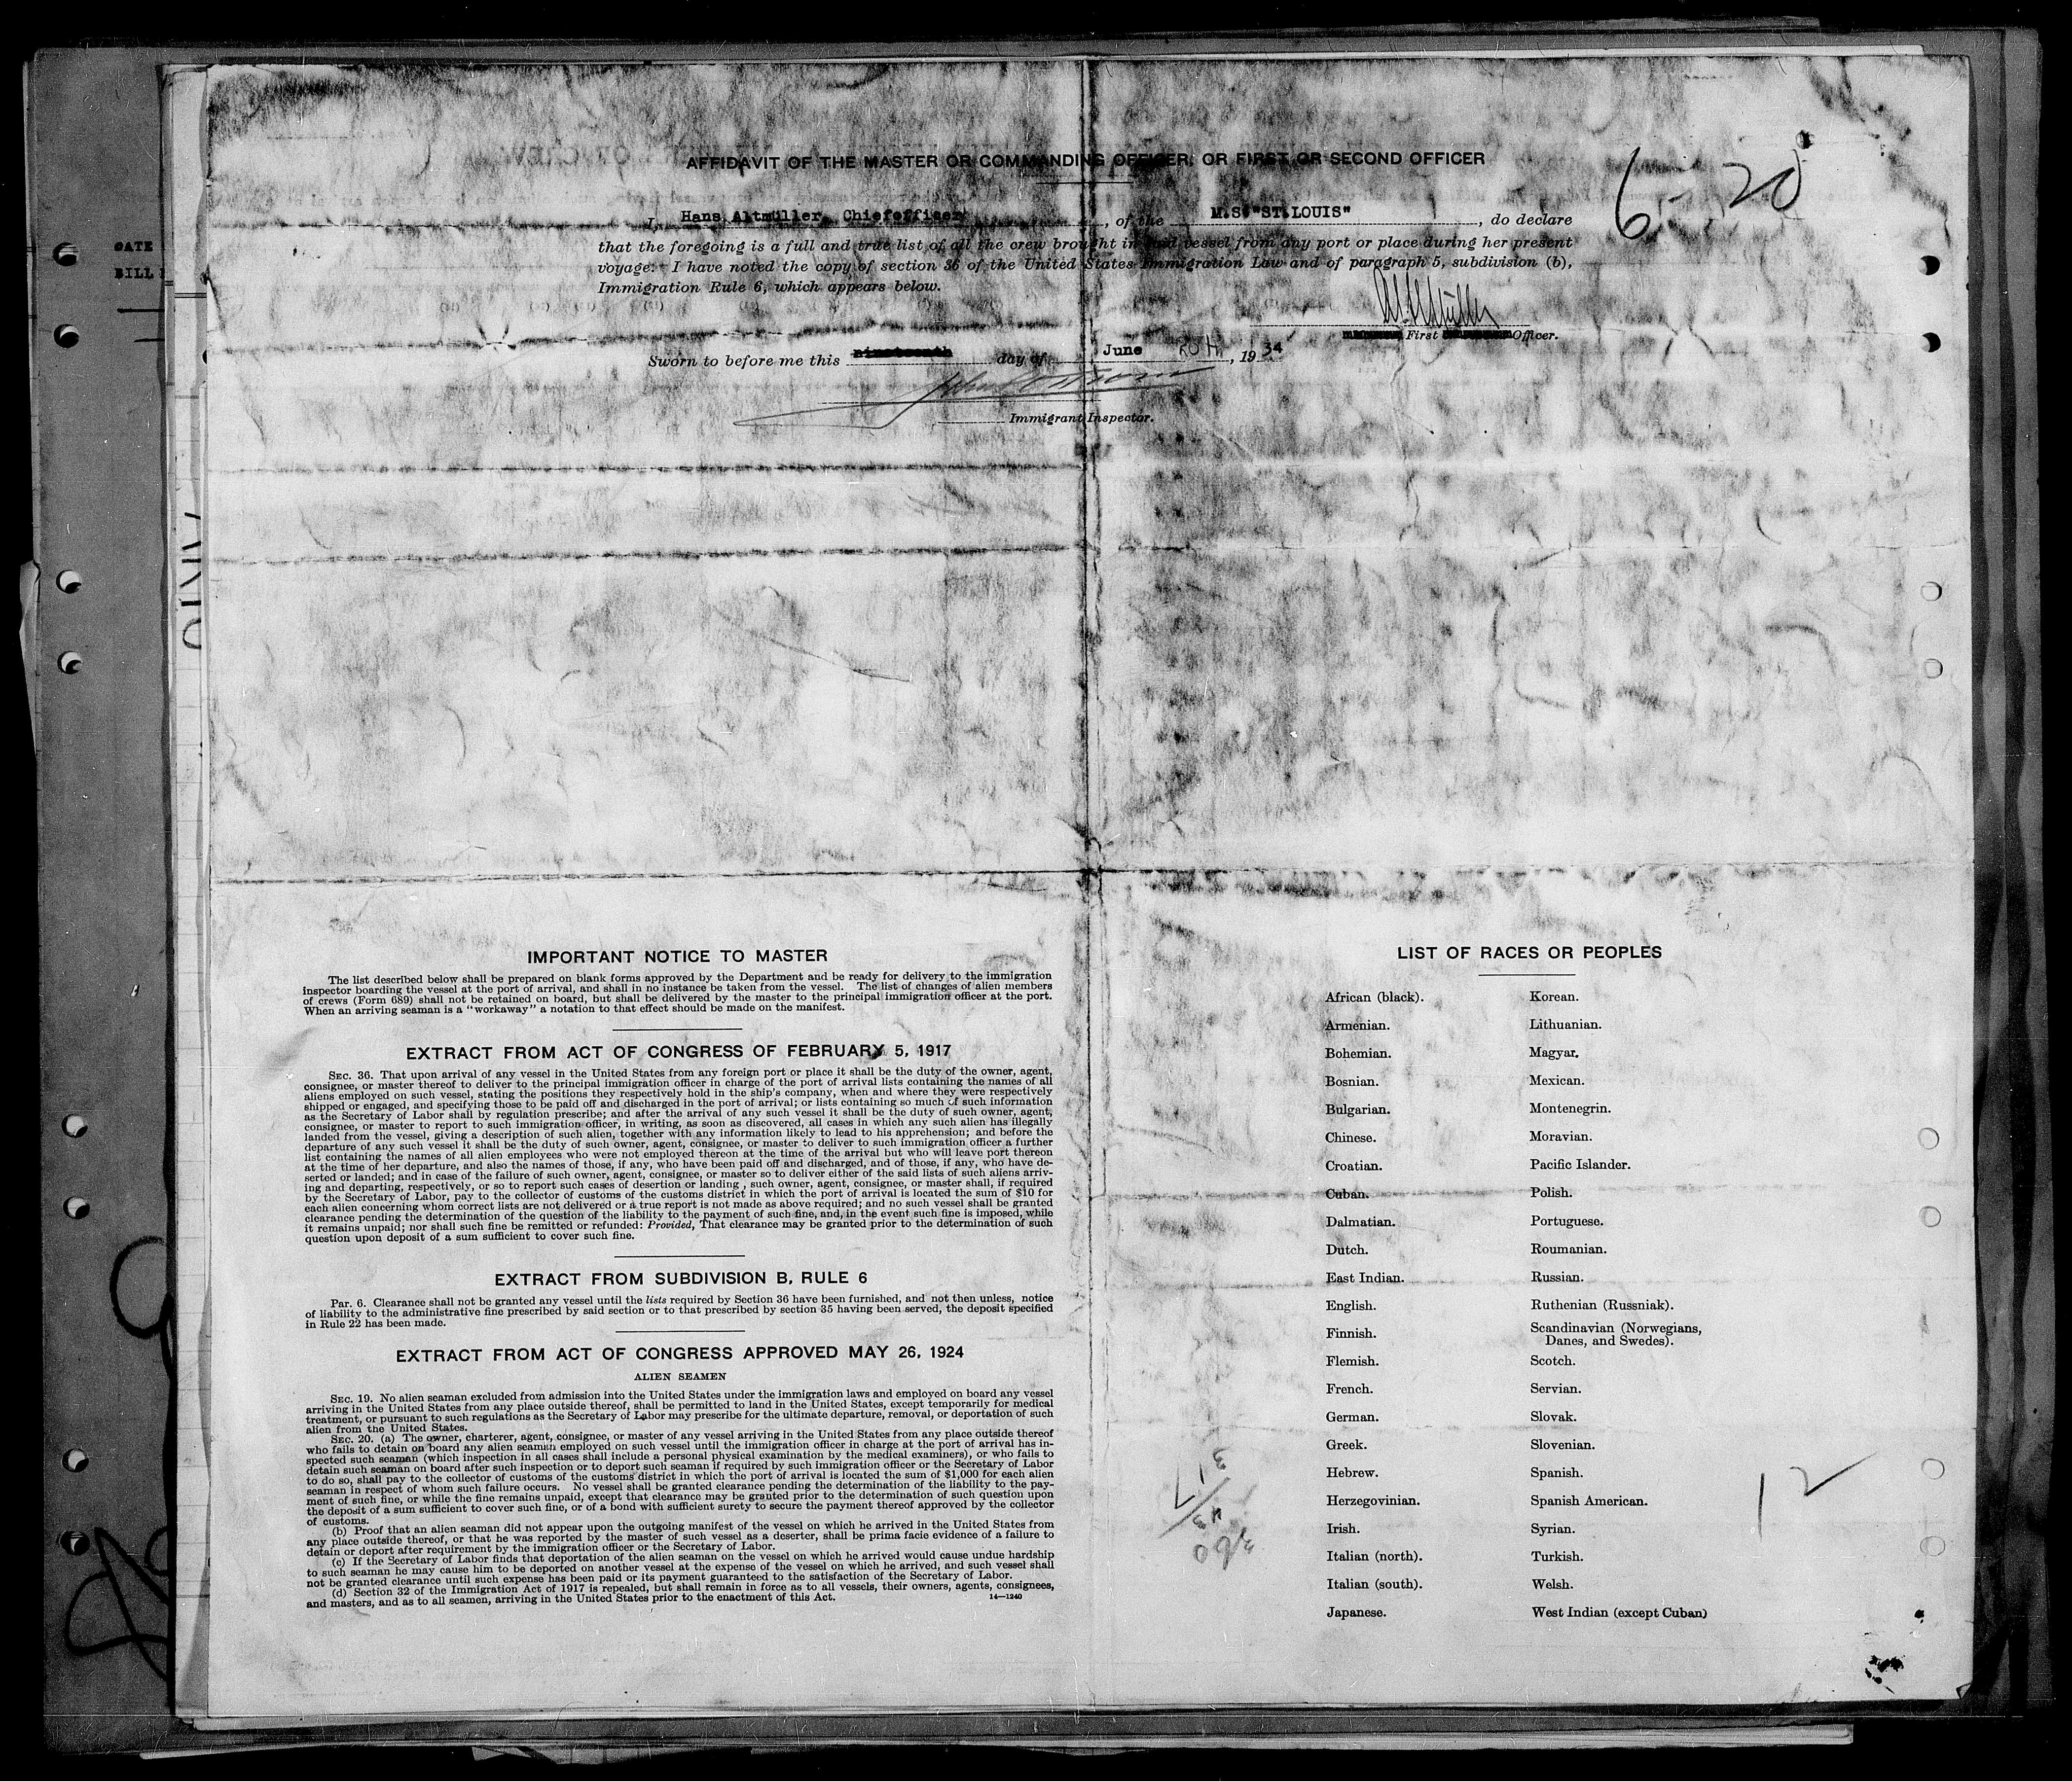 AFFIDAVIT OF THE MASTER OR COMMANDING OFFICER, OR FIRST OR SECOND OFFICER
6-20
I, Hans Altmüller, Chiefofficer, of the M.S."ST.LOUIS", do declare
that the foregoing is a full and true list of all the crew brought in said vessel from any port or place during her present
voyage. I have noted the copy of section 36 of the United States Immigration Law and of paragraph 5, subdivision (b),
Immigration Rule 6, which appears below.
First Officer.
Sworn to before me this nineteenth day of June 20th, 1934
Immigrant Inspector.
GATE
BILL
IMPORTANT NOTICE TO MASTER
The list described below shall be prepared on blank forms approved by the Department and be ready for delivery to the immigration
inspector boarding the vessel at the port of arrival, and shall in no instance be taken from the vessel. The list of changes of alien members
of crews (Form 689) shall not be retained on board, but shall be delivered by the master to the principal immigration officer at the port.
When an arriving seaman is a "workaway" a notation to that effect should be made on the manifest.
EXTRACT FROM ACT OF CONGRESS OF FEBRUARY 5, 1917
SEC. 36. That upon arrival of any vessel in the United States from any foreign port or place it shall be the duty of the owner, agent,
consignee, or master thereof to deliver to the principal immigration officer in charge of the port of arrival lists containing the names of all
aliens employed on such vessel, stating the positions they respectively hold in the ship's company, when and where they were respectively
shipped or engaged, and specifying those to be paid off and discharged in the port of arrival; or lists containing so much of such information
as the Secretary of Labor shall by regulation prescribe; and after the arrival of any such vessel it shall be the duty of such owner, agent,
consignee, or master to report to such immigration officer, in writing, as soon as discovered, all cases in which any such alien has illegally
landed from the vessel, giving a description of such alien, together with any information likely to lead to his apprehension; and before the
departure of any such vessel it shall be the duty of such owner, agent, consignee, or master to deliver to such immigration officer a further
list containing the names of all alien employees who were not employed thereon at the time of the arrival but who will leave port thereon
at the time of her departure, and also the names of those, if any, who have been paid off and discharged, and of those, if any, who have de-
serted or landed; and in case of the failure of such owner, agent, consignee, or master so to deliver either of the said lists of such aliens arriv-
ing and departing, respectively, or so to report such cases of desertion or landing , such owner, agent, consignee, or master shall, if required
by the Secretary of Labor, pay to the collector of customs of the customs district in which the port of arrival is located the sum of $10 for
each alien concerning whom correct lists are not delivered or a true report is not made as above required; and no such vessel shall be granted
clearance pending the determination of the question of the liability to the payment of such fine, and, in the event such fine is imposed, while
it remains unpaid; nor shall such fine be remitted or refunded: Provided, That clearance may be granted prior to the determination of such
question upon deposit of a sum sufficient to cover such fine.
EXTRACT FROM SUBDIVISION B, RULE 6
PAR. 6. Clearance shall not be granted any vessel until the lists required by Section 36 have been furnished, and not then unless, notice
of liability to the administrative fine prescribed by said section or to that prescribed by section 35 having been served, the deposit specified
in Rule 22 has been made.
EXTRACT FROM ACT OF CONGRESS APPROVED MAY 26, 1924
ALIEN SEAMEN
SEC. 19. No alien seaman excluded from admission into the United States under the immigration laws and employed on board any vessel
arriving in the United States from any place outside thereof, shall be permitted to land in the United States, except temporarily for medical
treatment, or pursuant to such regulations as the Secretary of Labor may prescribe for the ultimate departure, removal, or deportation of such
alien from the United States.
SEC. 20. (a) The owner, charterer, agent, consignee, or master of any vessel arriving in the United States from any place outside thereof
who fails to detain on board any alien seaman employed on such vessel until the immigration officer in charge at the port of arrival has in-
spected such seaman (which inspection in all cases shall include a personal physical examination by the medical examiners), or who fails to
detain such seaman on board after such inspection or to deport such seaman if required by such immigration officer or the Secretary of Labor
to do so, shall pay to the collector of customs of the customs district in which the port of arrival is located the sum of $1,000 for each alien
seaman in respect of whom such failure occurs. No vessel shall be granted clearance pending the determination of the liability to the pay-
ment of such fine, or while the fine remains unpaid, except that clearance may be granted prior to the determination of such question upon
the deposit of a sum sufficient to cover such fine, or of a bond with sufficient surety to secure the payment thereof approved by the collector
of customs.
(b) Proof that an alien seaman did not appear upon the outgoing manifest of the vessel on which he arrived in the United States from
any place outside thereof, or that he was reported by the master of such vessel as a deserter, shall be prima facie evidence of a failure to
detain or deport after requirement by the immigration officer or the Secretary of Labor.
(c) If the Secretary of Labor finds that deportation of the alien seaman on the vessel on which he arrived would cause undue hardship
to such seaman he may cause him to be deported on another vessel at the expense of the vessel on which he arrived, and such vessel shall
not be granted clearance until such expense has been paid or its payment guaranteed to the satisfaction of the Secretary of Labor.
(d) Section 32 of the Immigration Act of 1917 is repealed, but shall remain in force as to all vessels, their owners, agents, consignees,
and masters, and as to all seamen, arriving in the United States prior to the enactment of this Act.
14—1240
LIST OF RACES OR PEOPLES
African (black).
Armenian.
Bohemian.
Bosnian.
Bulgarian.
Chinese.
Croatian.
Cuban.
Dalmatian.
Dutch.
East Indian.
English.
Finnish.
Flemish.
French.
German.
Greek.
Hebrew.
Herzegovinian.
Irish.
Italian (north).
Italian (south).
Japanese.
Korean.
Lithuanian.
Magyar.
Mexican.
Montenegrin.
Moravian.
Pacific Islander.
Polish.
Portuguese.
Roumanian.
Russian.
Ruthenian (Russniak).
Scandinavian (Norwegians,
Danes, and Swedes).
Scotch.
Servian.
Slovak.
Slovenian.
Spanish.
Spanish American.
Syrian.
Turkish.
Welsh.
West Indian (except Cuban)
317
43
360
12